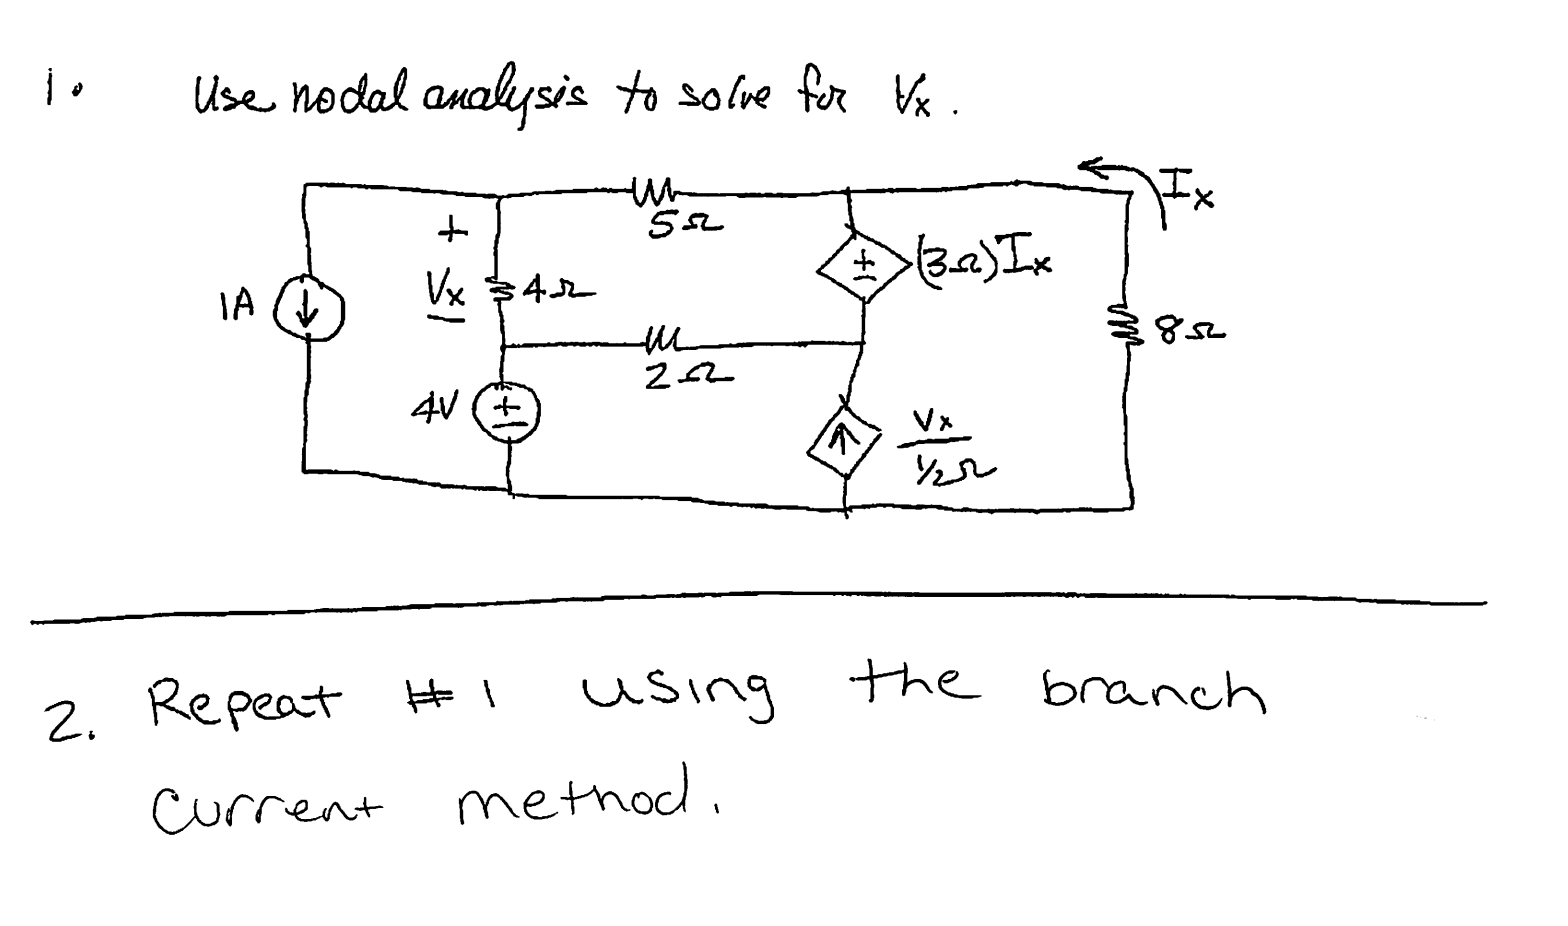 1. Use nodal analysis to solve for Vx.
Ix
+
5Ω
(3Ω)Ix
+
-
Vx
4Ω
1A
8Ω
2Ω
4V
+
-
Vx
½Ω
2. Repeat #1 using the branch
current method.